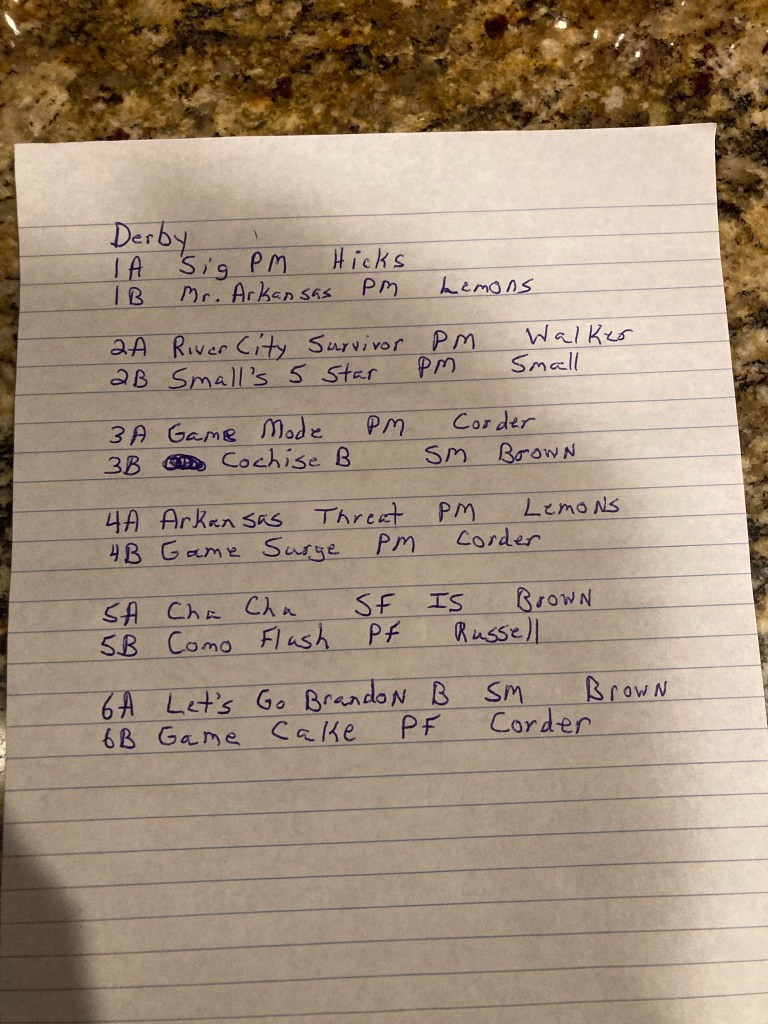 Derby
1A Sig PM Hicks
1B Mr. Arkansas PM Lemons
2A River City Survivor PM Walker
2B Small's 5 Star PM Small
3A Game Mode PM Corder
3B Cochise B SM Brown
4A Arkansas Threat PM Lemons
4B Game Surge PM Corder
5A Cha Cha SF IS Brown
5B Como Flash PF Russell
6A Let's Go Brandon B SM Brown
6B Game Cake PF Corder